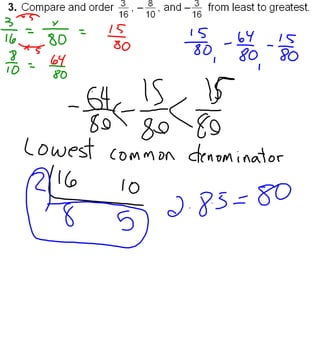 3. Compare and order 3/16, -8/10, and -3/16 from least to greatest.
3/16 = x/80 = 15/80
×5
×5
8/10 = 64/80
15/80, -64/80, -15/80
-64/80 < -15/80 < 15/80
Lowest common denominator
2 | 16 10
8 5
2·8·5=80